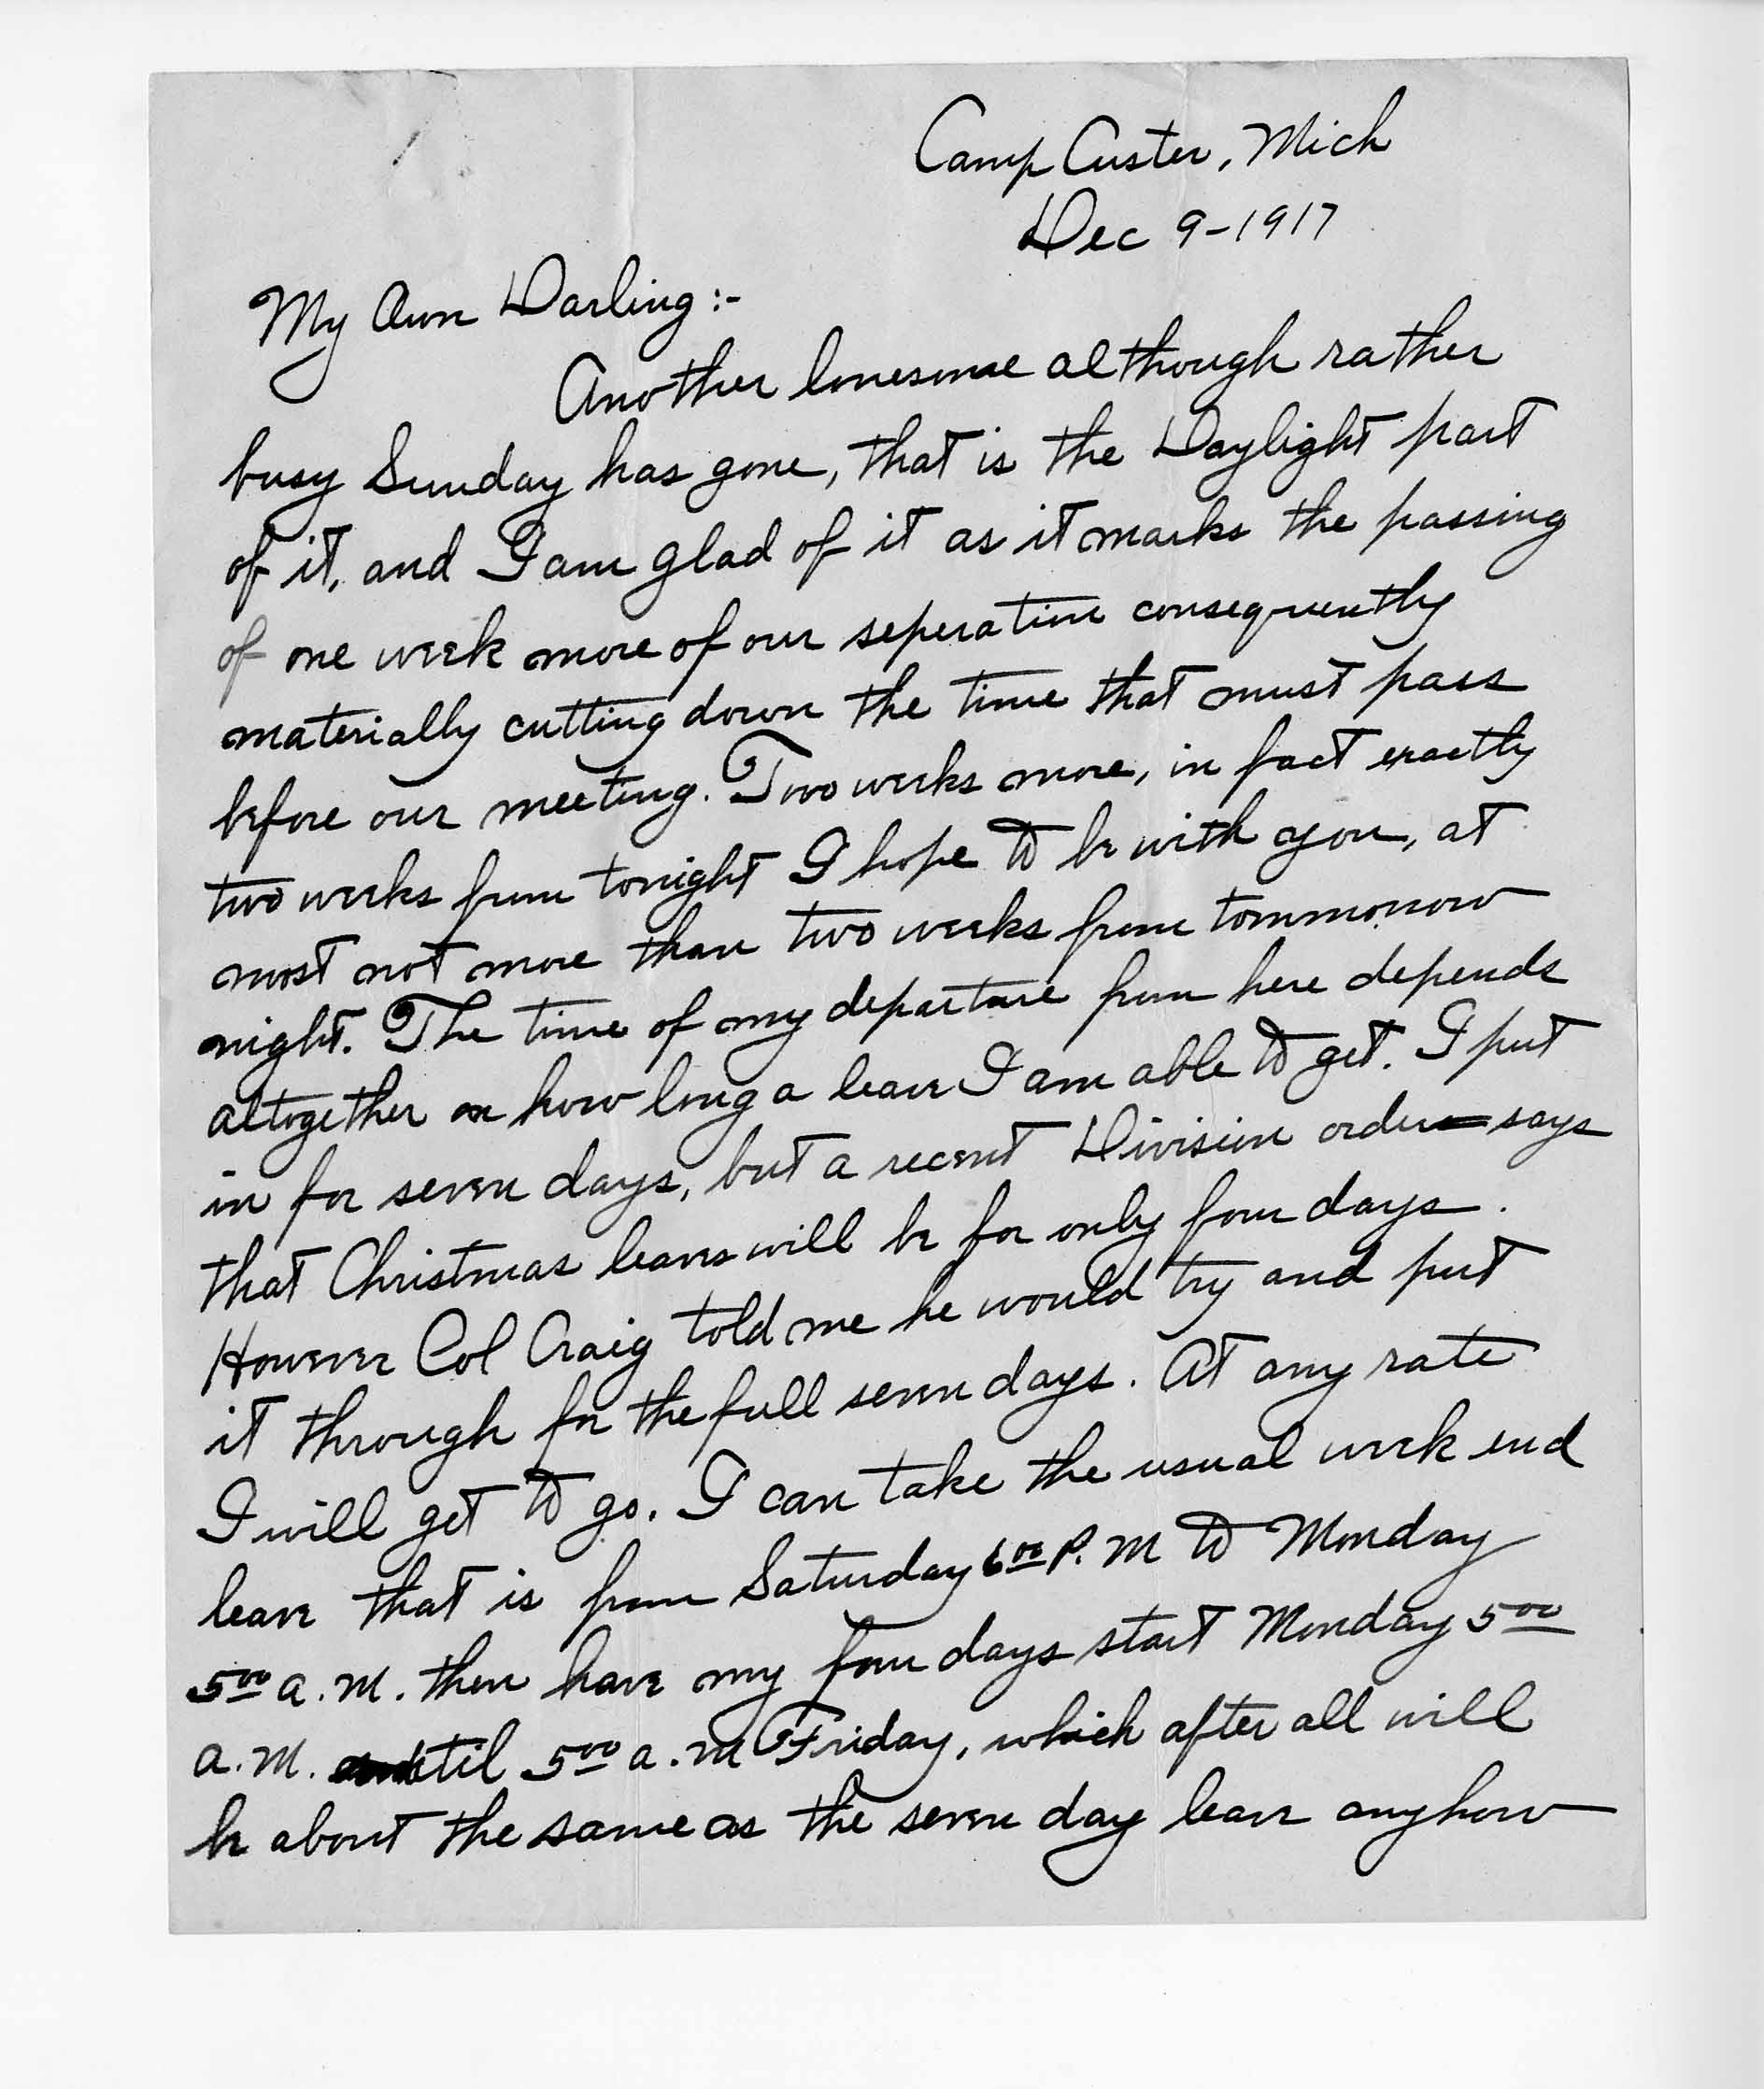 Camp Custer, Mich
Dec 9-1917
My Own Darling:-
Another lonesome although rather
busy Sunday has gone, that is the Daylight part
of it, and I am glad of it as it marks the passing
of one week more of our seperation consequently
materially cutting down the time that must pass
before our meeting. Two weeks more, in fact exactly
two weeks from tonight I hope to be with you, at
most not more than two weeks from tommorrow
night. The time of my departure from here depends
altogether on how long a leave I am able to get. I put
in for seven days, but a recent Division order says
that Christmas leaves will be for only four days.
However Col Craig told me he would try and put
it through for the full seven days. At any rate
I will get to go. I can take the usual week end
leave that is from Saturday 6 00 P.M to Monday
5 00 a.m. then have my four days start Monday 5 00
a.m. until 5 00 a.m Friday, which after all will
be about the same as the seven day leave anyhow